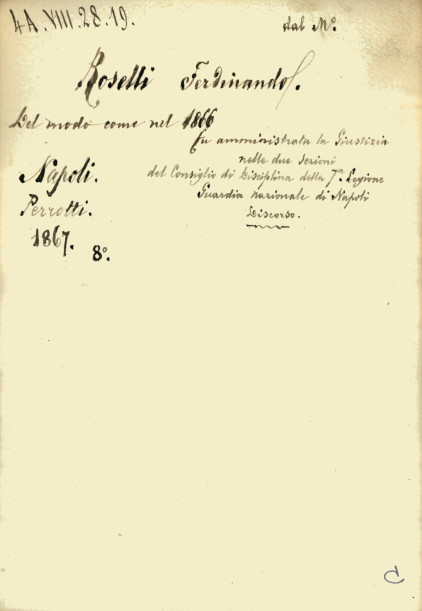 4A.VIII.28.19.
dal Mº.
Roselli Ferdinando.
Del modo come nel 1866
fu amministrata la Giustizia
nelle due Sezioni
del Consiglio di Disciplina della 7ª Legione
Guardia nazionale di Napoli
Discorso.
Napoli.
Perrotti.
1867.
8º.
C